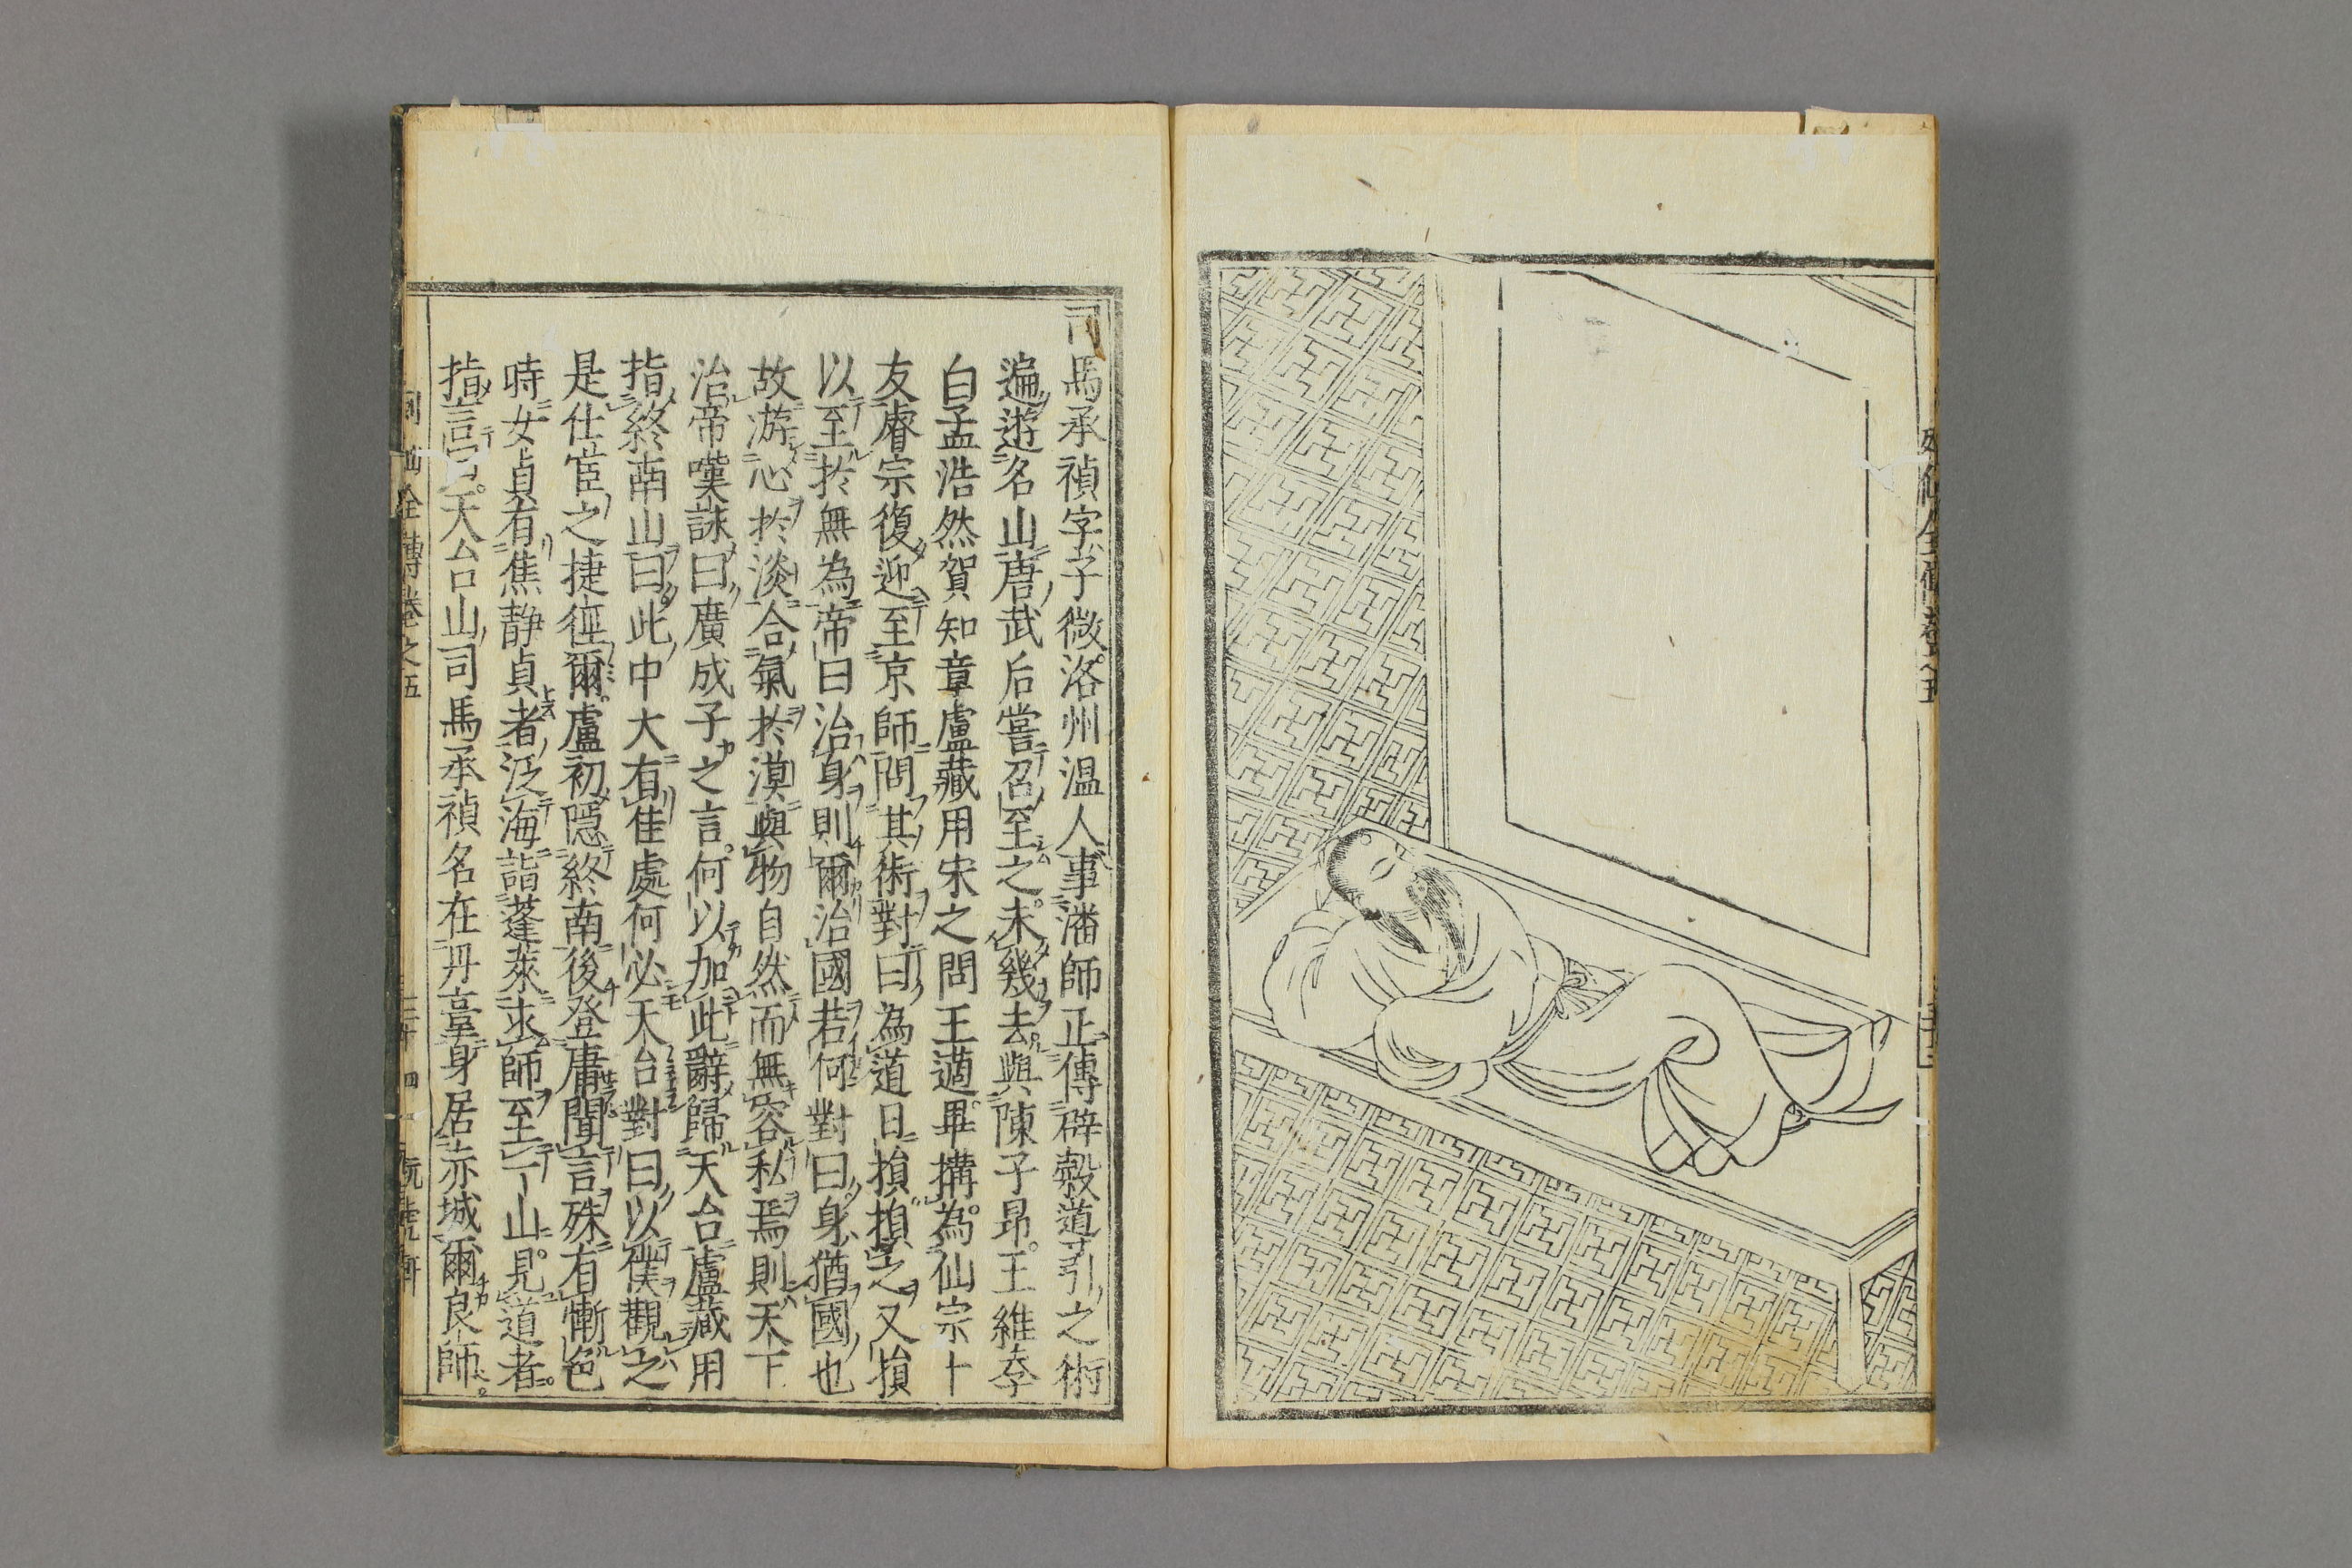 司馬承禎字子微洛州温人事潘師正傳辟穀導引之術
遍遊名山唐武后嘗召至之未幾去與陳子昻王維李
白孟浩然賀知章盧藏用宋之問王適畢搆為仙宗十
友睿宗復迎至京師問其術對曰為道日損損之又損
以至於無為帝曰治身則爾治國若何對曰身猶國也
故游心於淡合氣於漠與物自然而無容私焉則天下
治帝嘆詠曰廣成子之言何以加此辭歸天台盧藏用
指終南山曰此中大有佳處何必天台對曰以僕觀之
是仕宦之捷徑爾盧初隱終南後登庸聞言殊有慚色
時女貞有焦静貞者泛海詣蓬萊求師至一山見道者
指言曰天台山司馬承禎名在丹臺身居赤城爾良師
列仙全傳卷之五
三十四
玩虎軒